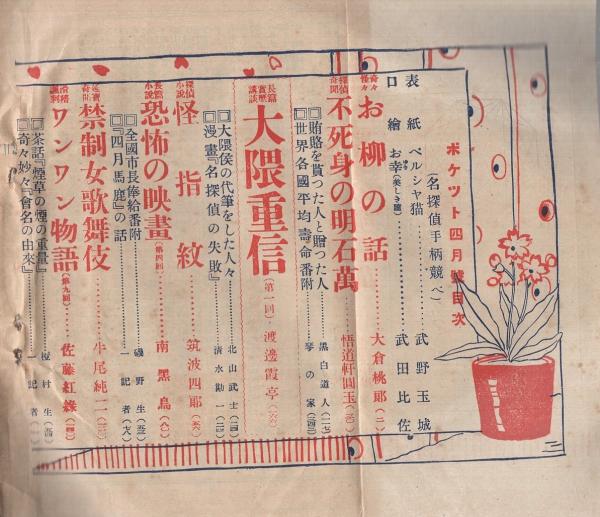 ポケット四月號目次
(名探偵手柄競べ)
表紙 ペルシャ猫 武野玉城
口繪 お幸(美しき瞳) 武田比佐
奇々怪々 お柳の話 大倉桃郞(二)
探偵奇聞 不死身の明石萬 悟道軒圓玉
賄賂を貰つた人と贈つた人 黑白道人
世界各國平均壽命番附 琴の家
長篇實歷講談 大隈重信(第一回) 渡邊霞亭
大隈侯の代筆をした人々 北山武士
漫畫『名探偵の失敗』 淸水勘一
探偵小說 怪指紋 筑波四郞
長篇小說 恐怖の映畫(第四回) 南黑鳥
全國市長俸給番附 磯野生
『四月馬鹿』の話 一記者
禁制女歌舞伎 牛尾純二
滑稽諷刺 ワンワン物語(第九回) 佐藤紅綠
茶話『煙草の煙の重量』 村生
奇々妙々『會名の由來』 一記者